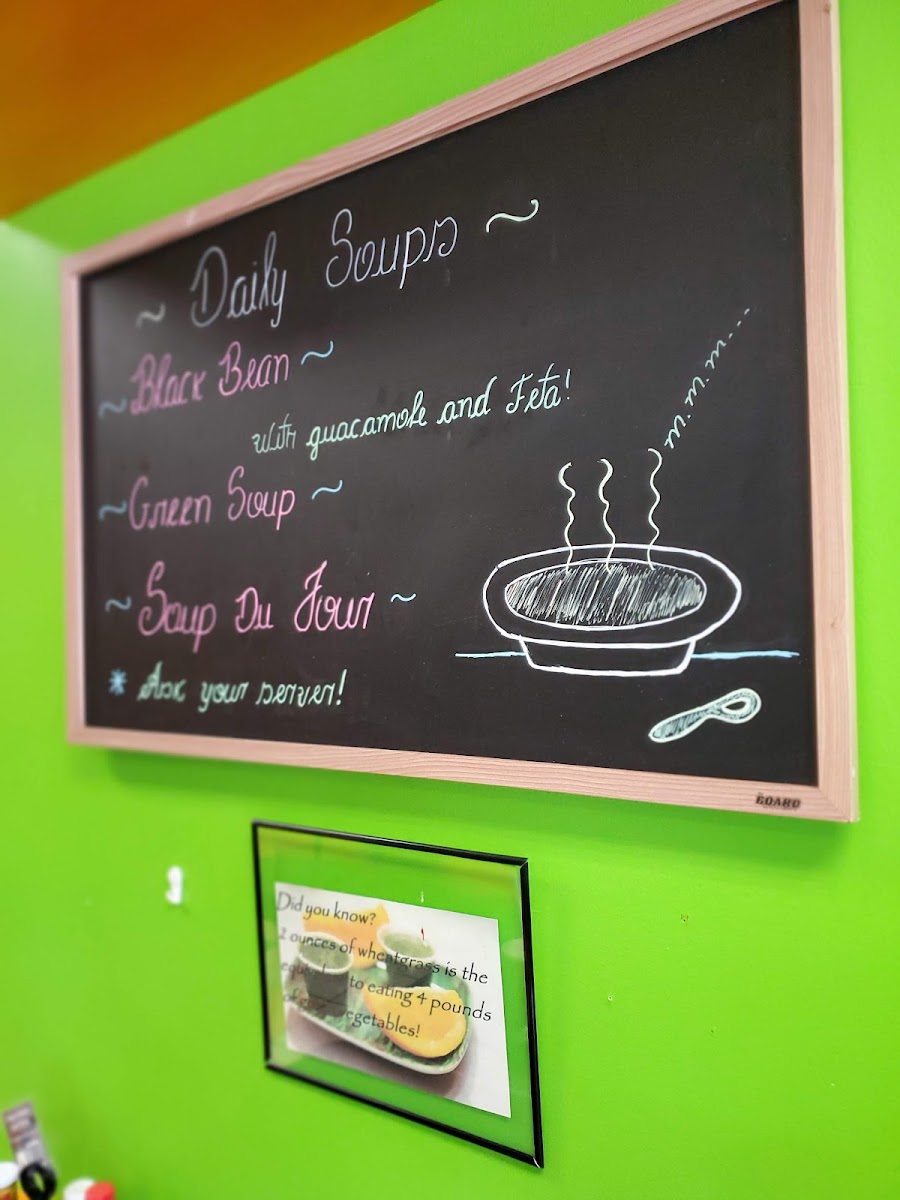 ~ Daily Soups ~
~ Black Bean ~
with guacamole and Feta!
~ Green Soup ~
~ Soup Du Jour ~
* Ask your server!
m m m m ...
BOARD
Did you know?
2 ounces of wheatgrass is the
to eating 4 pounds
of vegetables!